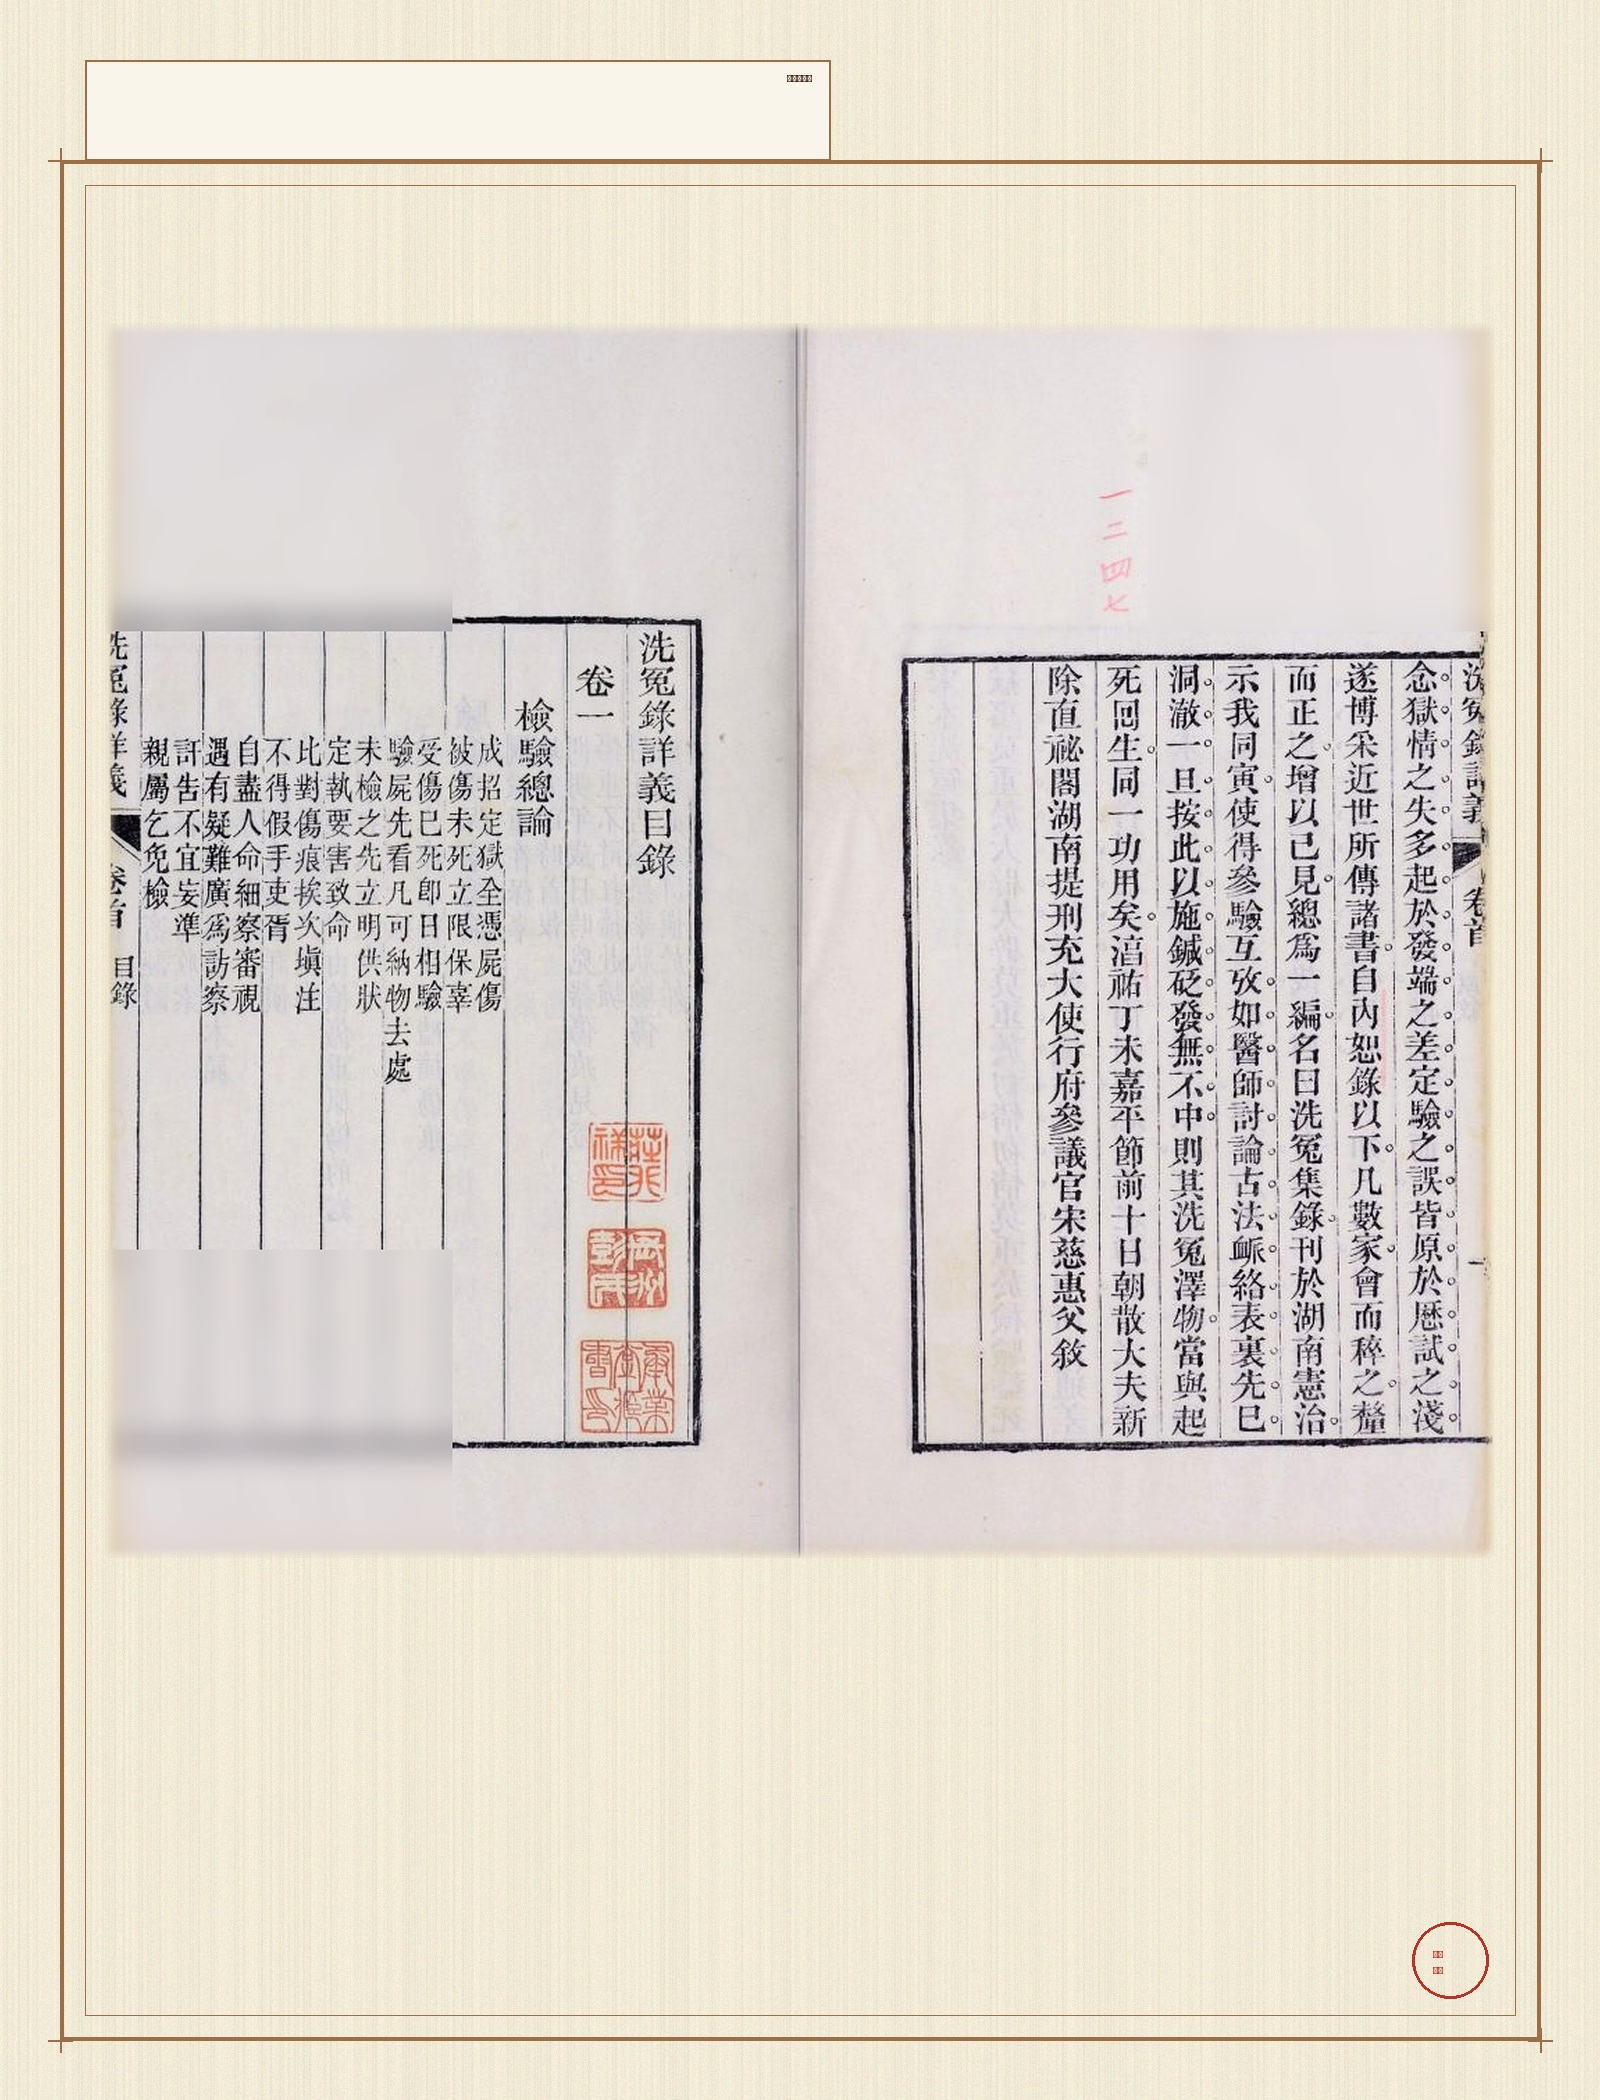 洗冤錄詳義
卷首
一
念獄情之失多起於發端之差定驗之誤皆原於歷試之淺
遂博采近世所傳諸書自內恕錄以下凡數家會而稡之釐
而正之增以己見總爲一編名曰洗冤集錄刊於湖南憲治
示我同寅使得參驗互攷如醫師討論古法衇絡表裏先已
洞澈一旦按此以施鍼砭發無不中則其洗冤澤物當與起
死回生同一功用矣湻祐丁未嘉平節前十日朝散大夫新
除直祕閣湖南提刑充大使行府參議官宋慈惠父敘
一二四七
洗冤錄詳義目錄
卷一
檢驗總論
成招定獄全憑屍傷
被傷未死立限保辜
受傷已死卽日相驗
驗屍先看凡可納物去處
未檢之先立明供狀
定執要害致命
比對傷痕挨次塡注
不得假手吏胥
自盡人命細察審視
遇有疑難廣爲訪察
訐吿不宜妄準
親屬乞免檢
洗冤錄詳義
卷首
目錄